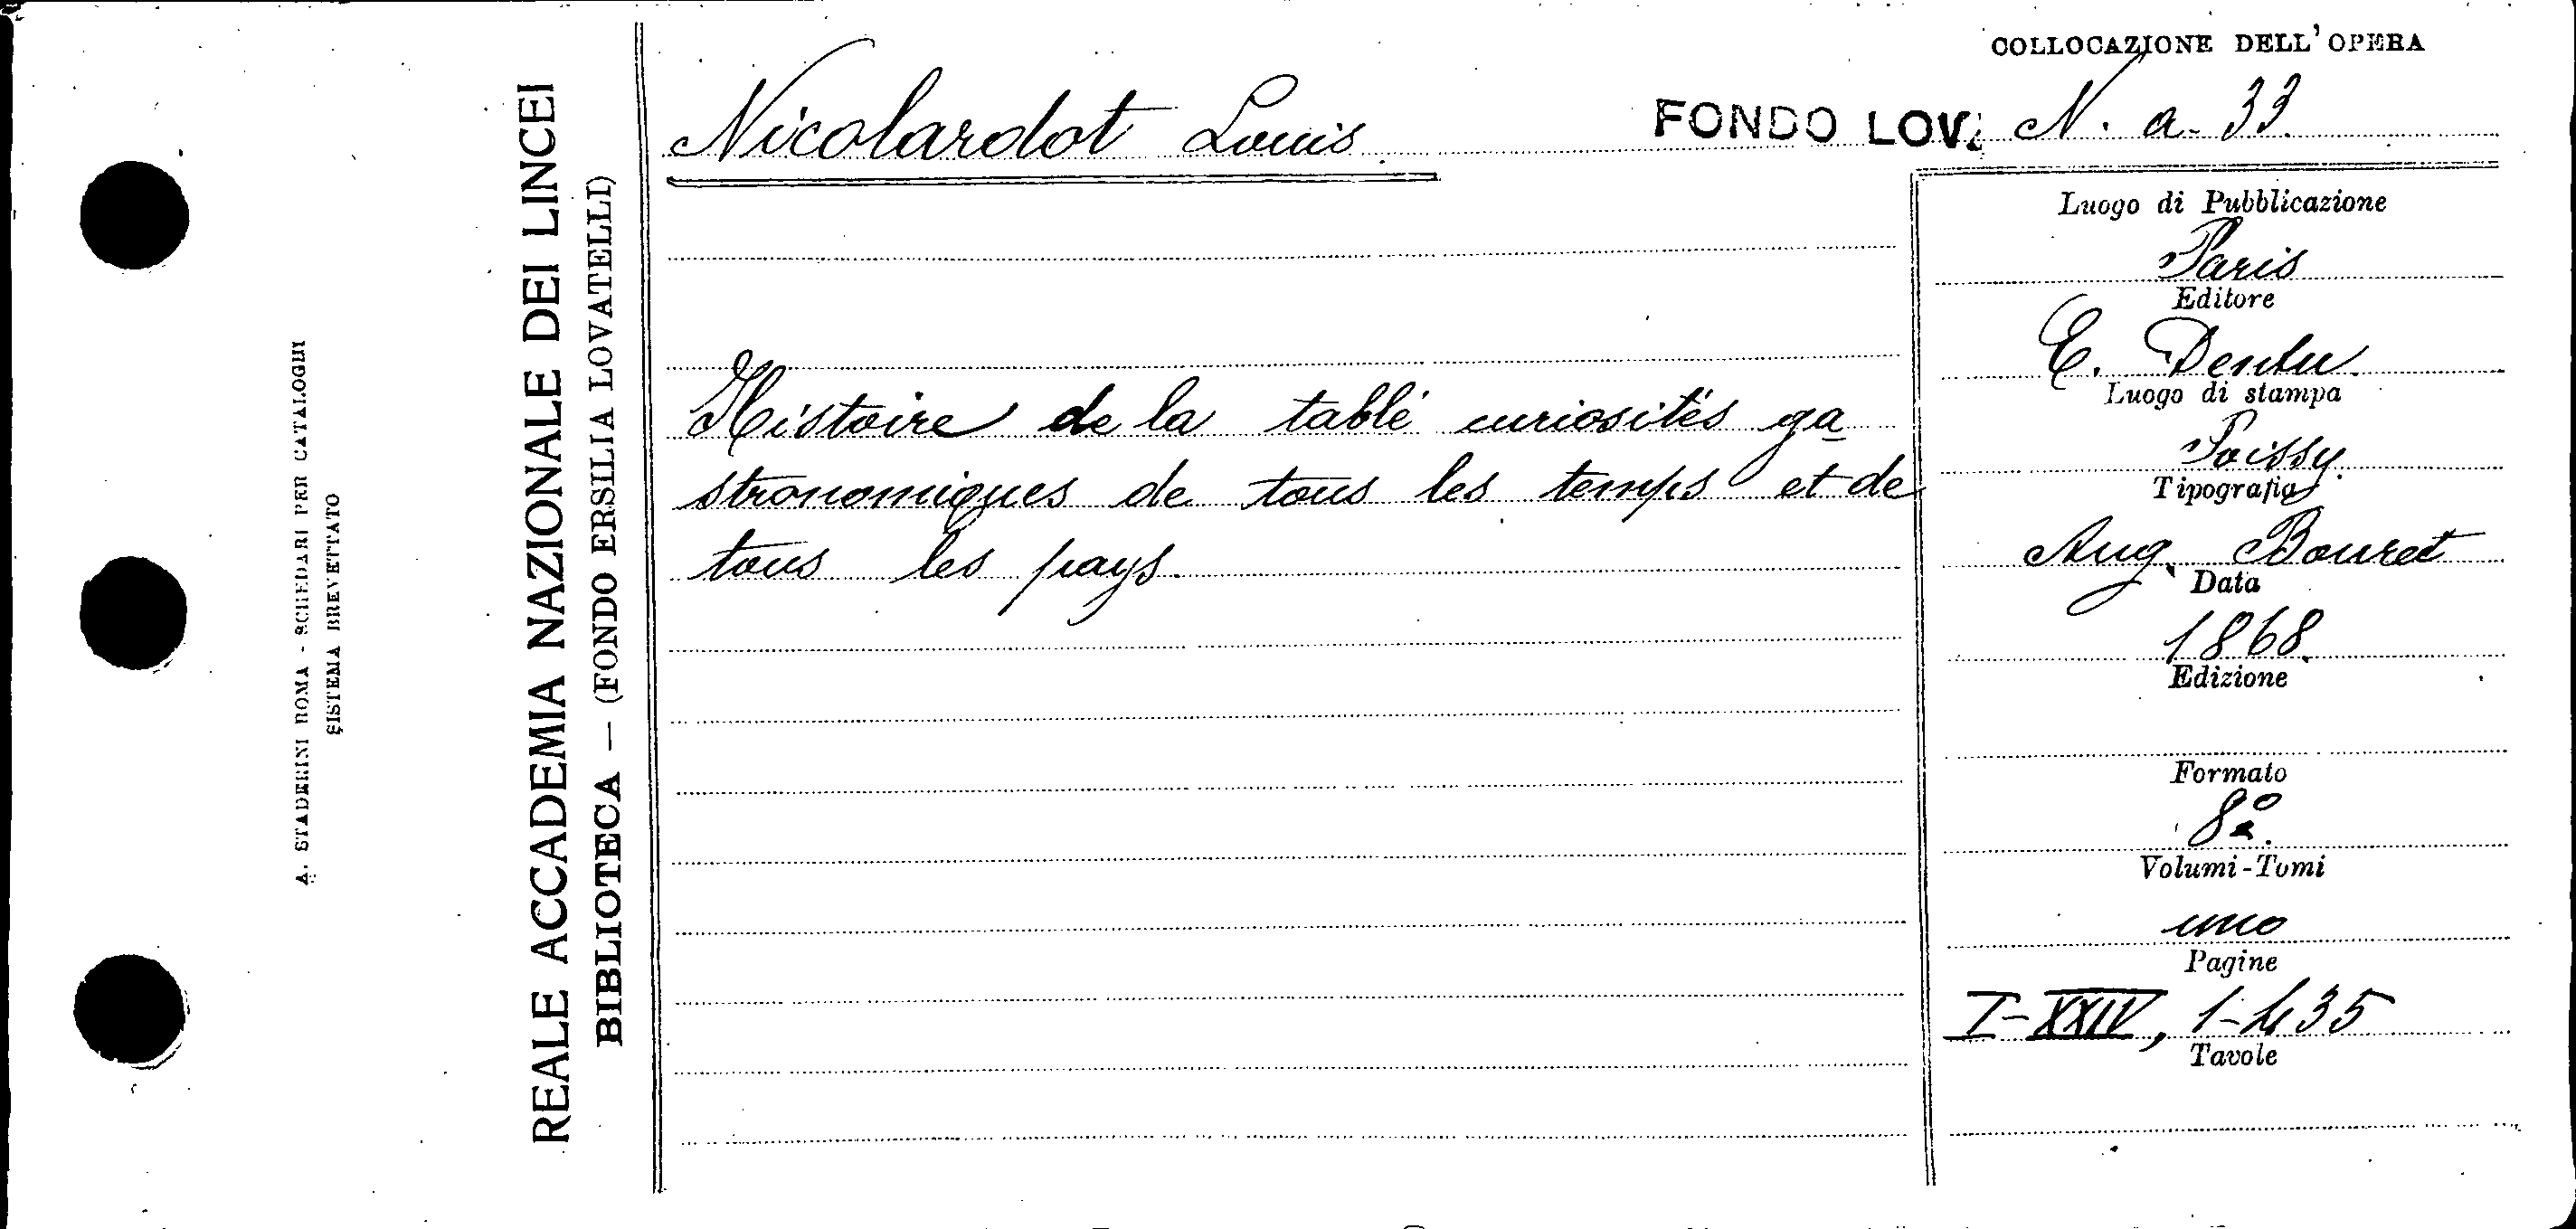 A. STADERINI ROMA - SCHEDARI PER CATALOGHI
SISTEMA BREVETTATO
REALE ACCADEMIA NAZIONALE DEI LINCEI
BIBLIOTECA — (FONDO ERSILIA LOVATELLI)
COLLOCAZIONE DELL'OPERA
Nicolardot Louis.
FONDO LOV. N. a. 33.
Histoire de la tablé curiosités ga-
stronomiques de tous les temps et de
tous les pays.
Luogo di Pubblicazione
Paris
Editore
E. Dentu.
Luogo di stampa
Poissy.
Tipografia
Aug. Bouret
Data
1868.
Edizione
Formato
8º.
Volumi-Tomi
uno
Pagine
I-XXIV, 1-435
Tavole